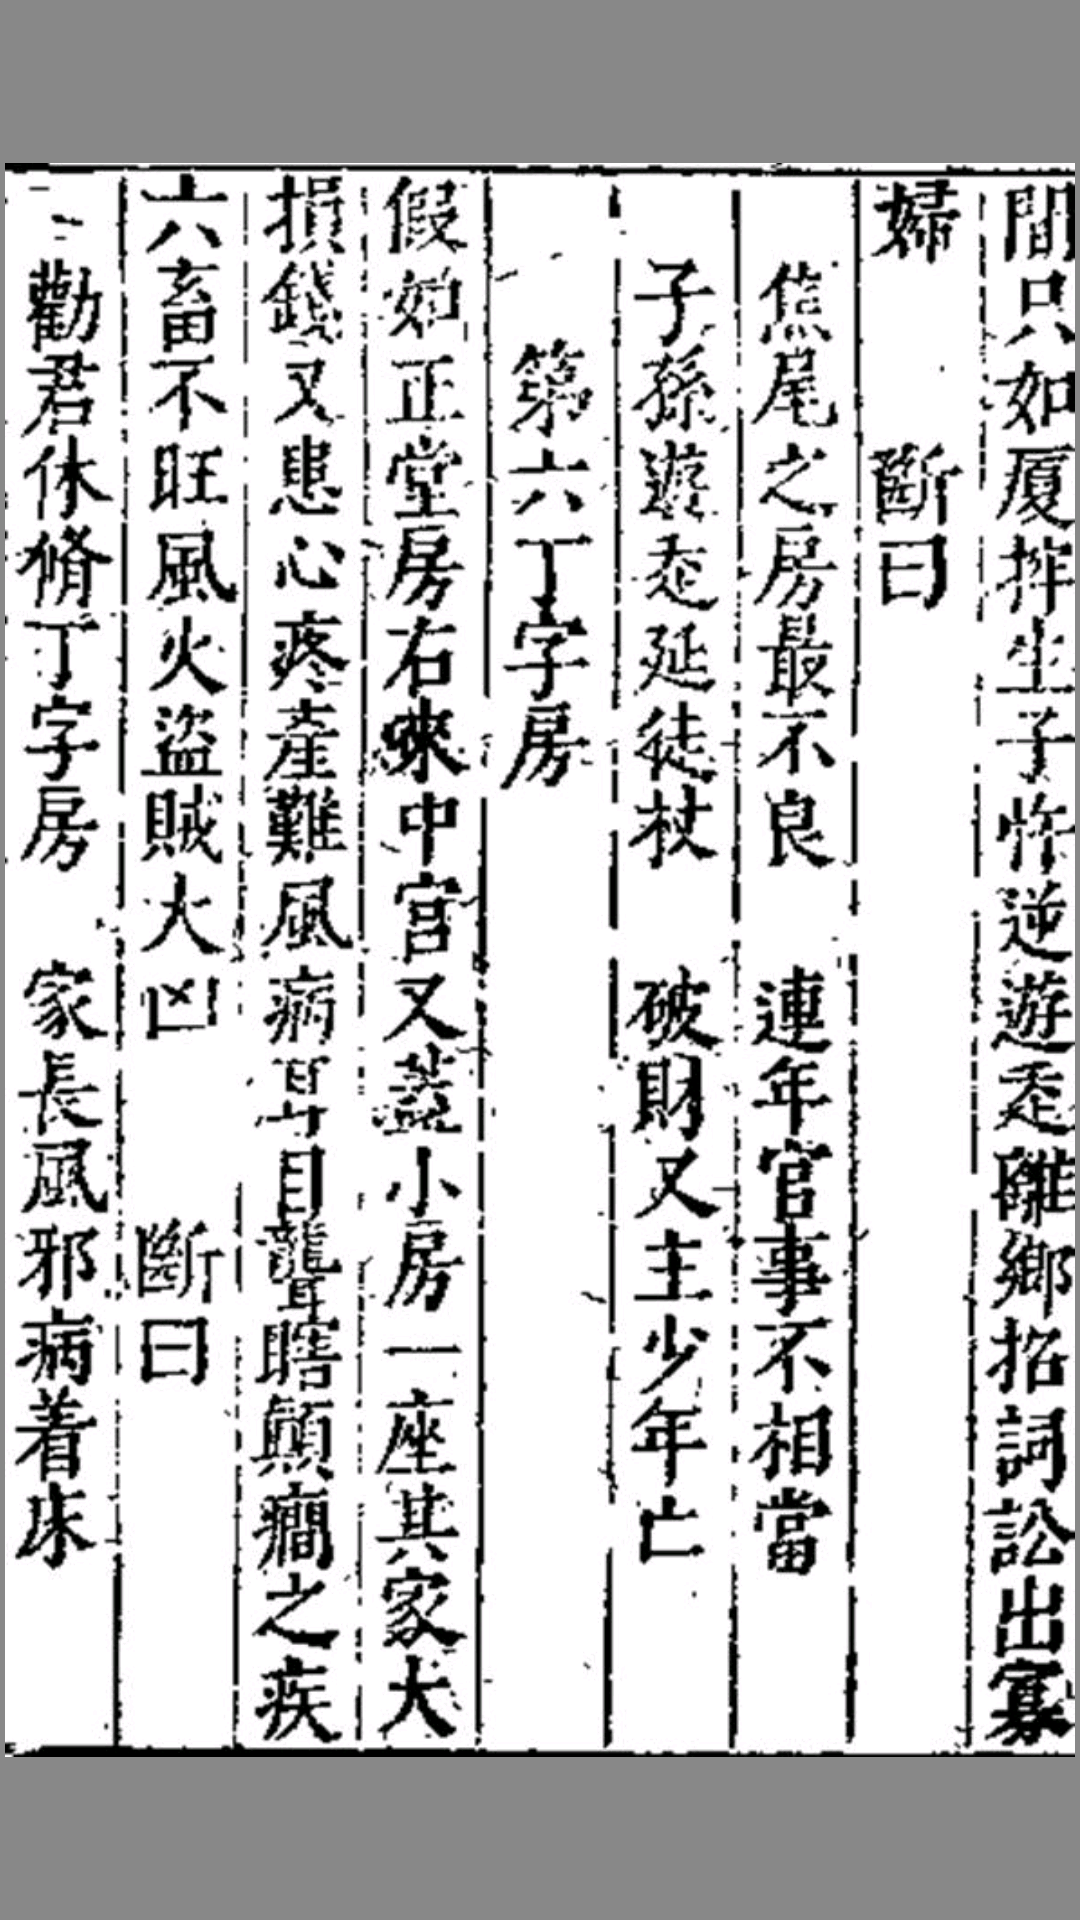 間只如厦拃生子忤逆遊赱離鄉招詞訟出寡
婦　　斷曰
焦尾之房最不良　連年官事不相當
子孫遊赱延徒杖　破財又主少年亡
第六丁字房
假如正堂房右來中宮又蓋小房一座其家大
損錢又患心疼產難風病耳目聾瞎顛癎之疾
六畜不旺風火盜賊大凶　　斷曰
勸君休脩丁字房　家長風邪病着床